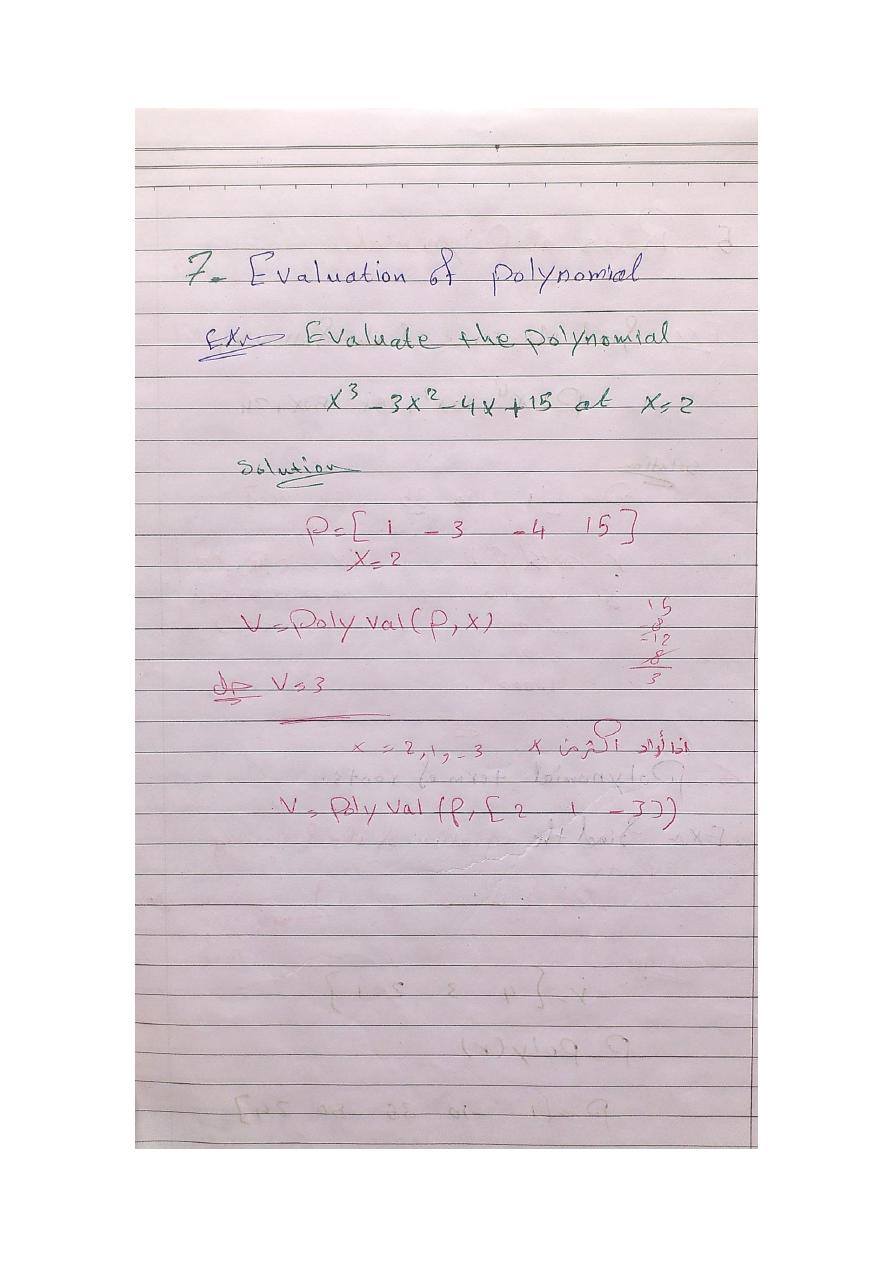 7- Evaluation of polynomial
Ex:- Evaluate the polynomial
x³ - 3x² - 4x + 15 at x=2
Solution
P=[ 1 -3 -4 15 ]
X=2
V=polyval(P,x)
15
-8
-12
8
3
V=3
x = 2, 1, -3 x اذا أراد اكثر من
V= Polyval (P,[ 2 1 -3])